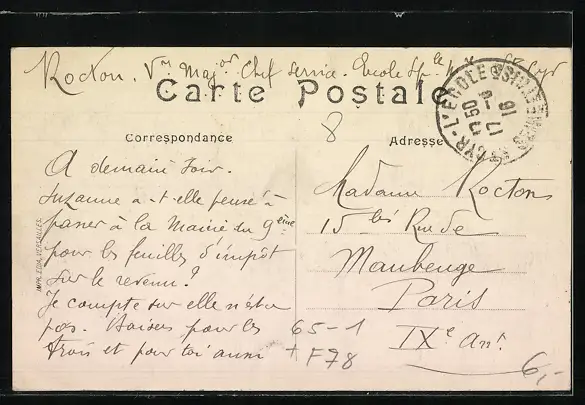 Rocton. Vre Major Chef Service. Ecole Sple Mre St Cyr
Carte Postale
ST CYR-L'ECOLE SEINE-ET-OISE
17 50
17 - 6
16
8
Correspondance
Adresse
A demain soir.
Suzanne a-t-elle pensé à
passer à la Mairie du 9ème
pour les feuilles d'impôt
sur le revenu?
Je compte sur elle n'est-ce
pas. Baisers pour les
trois et pour toi aussi
Madame Rocton
15 bis Rue de
Maubeuge
Paris
IXe Arrt.
IMP. EDIA. VERSAILLES
65-1
+ F78
6,-